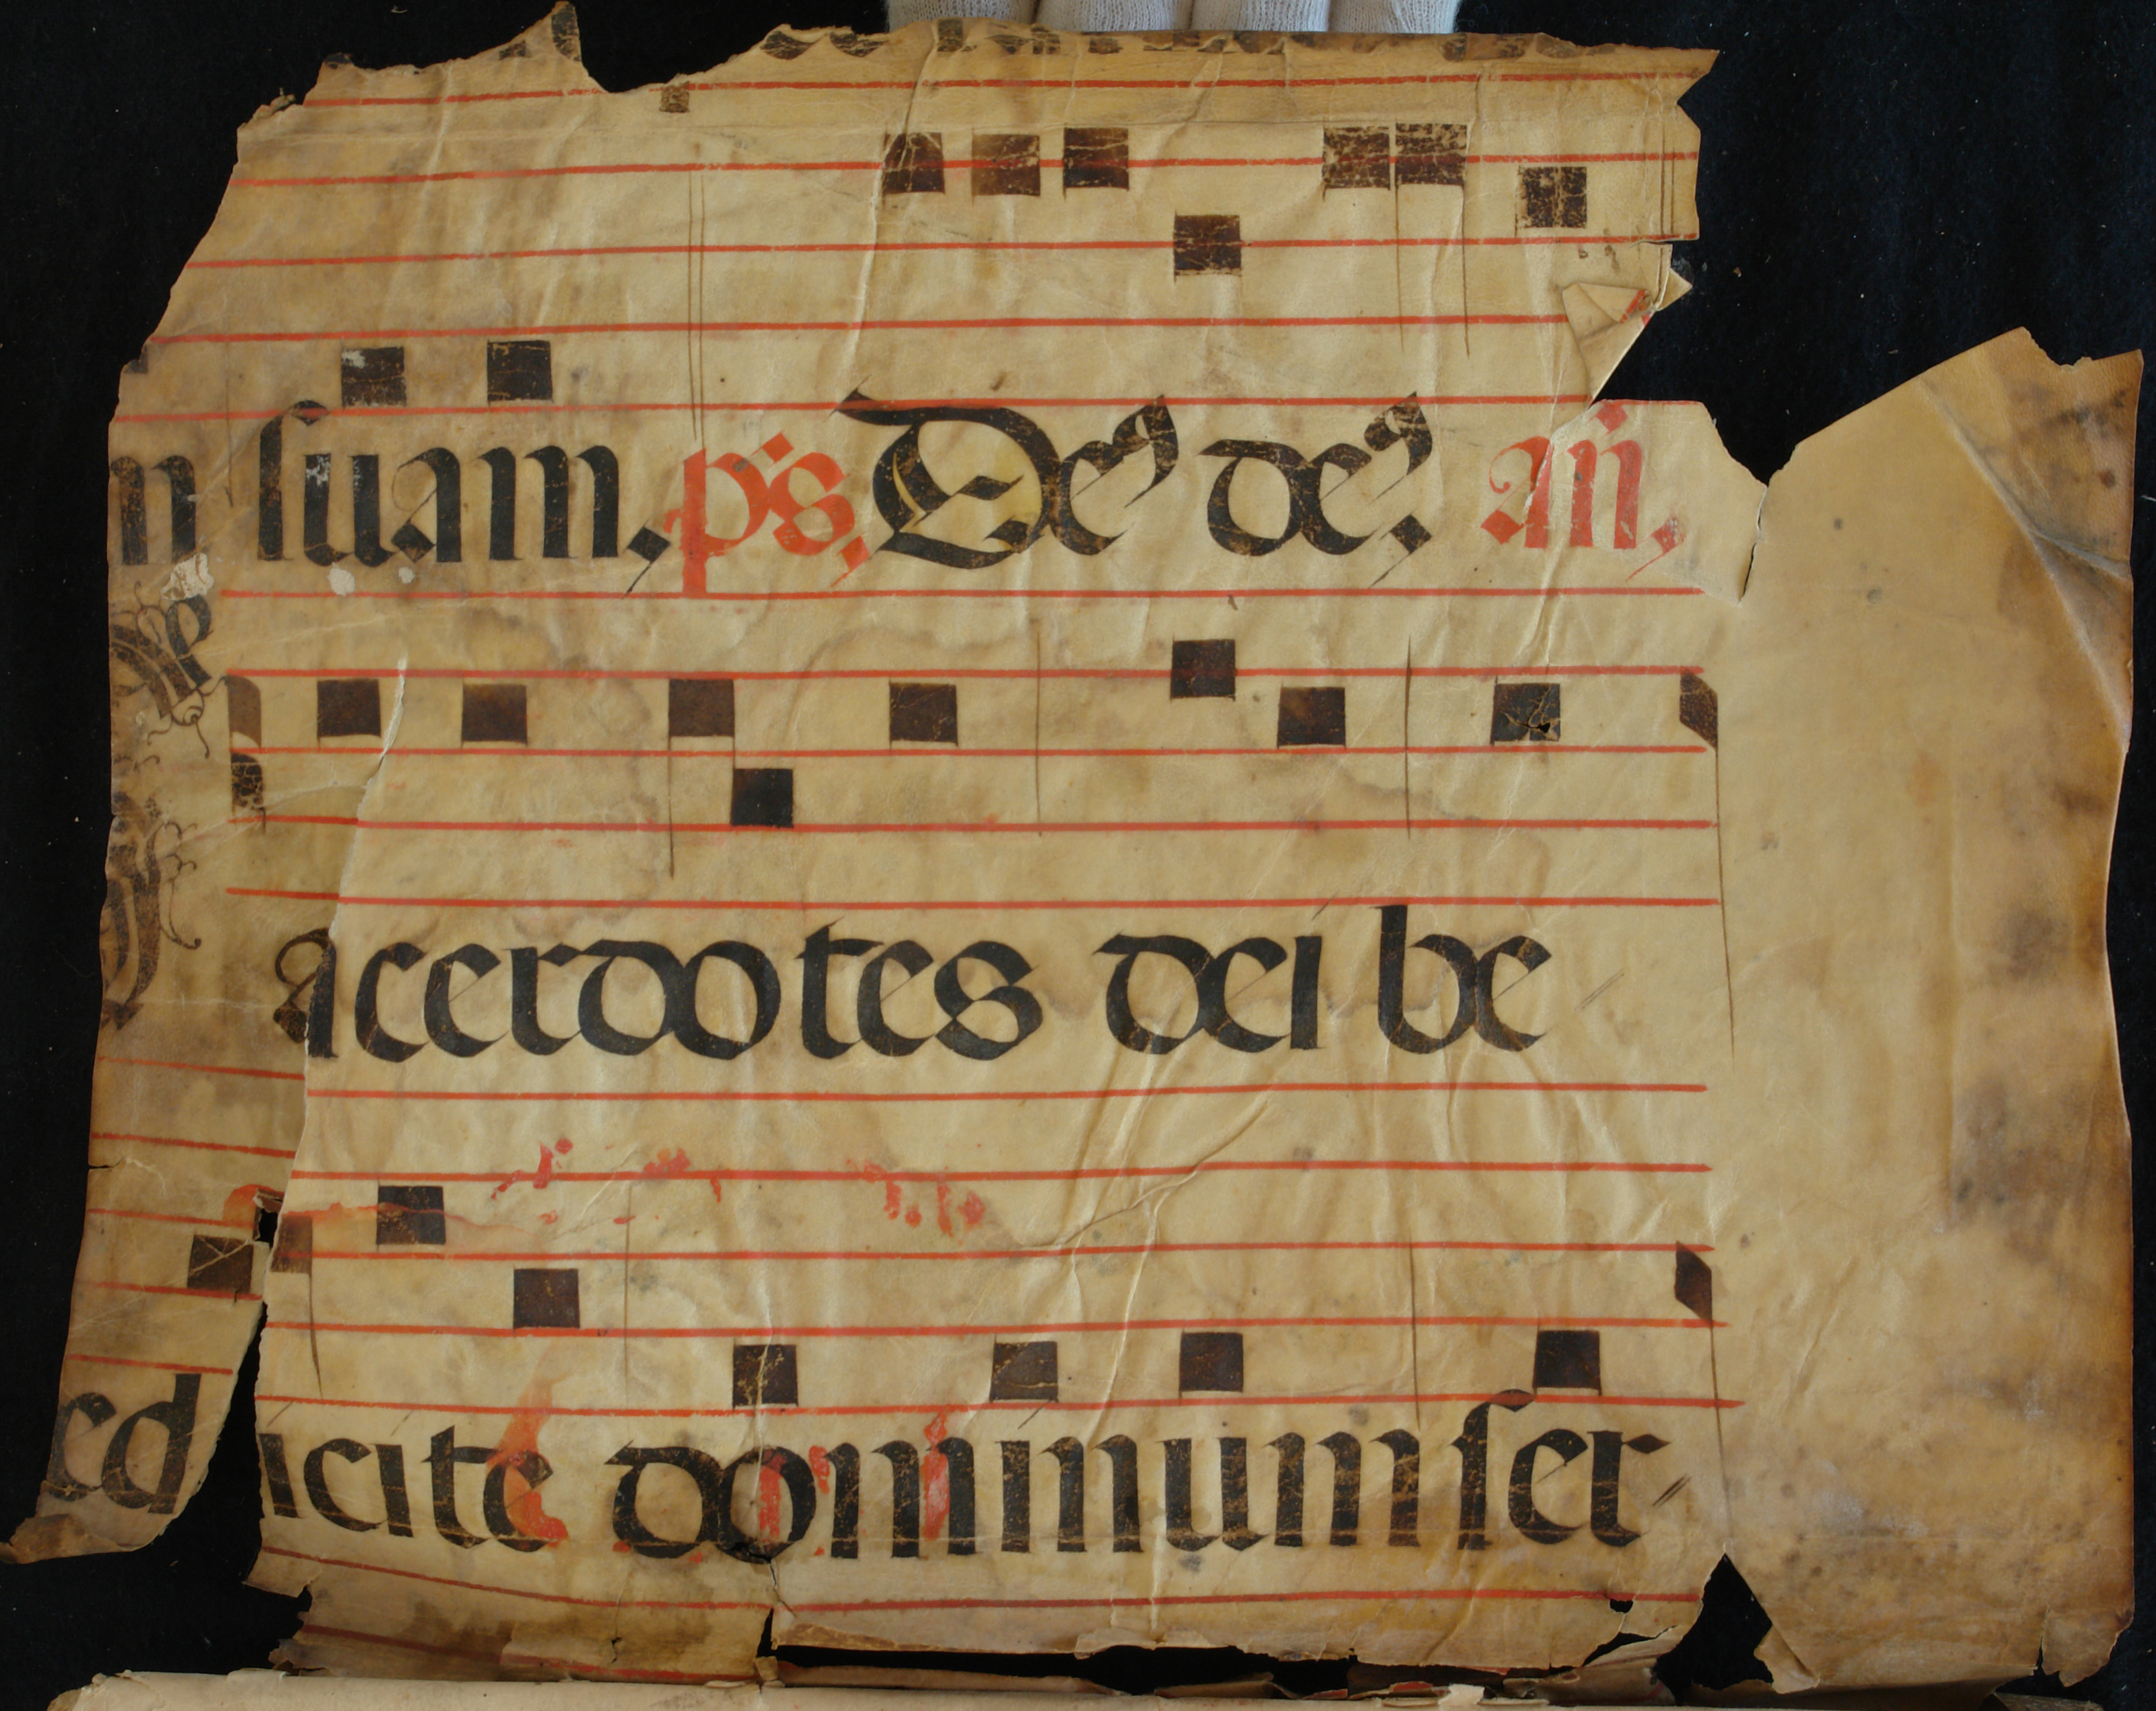 m suam, ps, De9 de9. añ,
acerdotes dei be
ed icite dominum ser